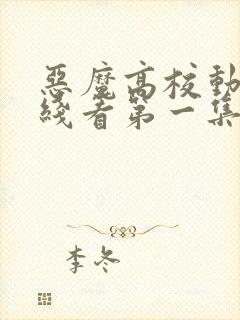 惡魔高校動
綫看第一集
李冬